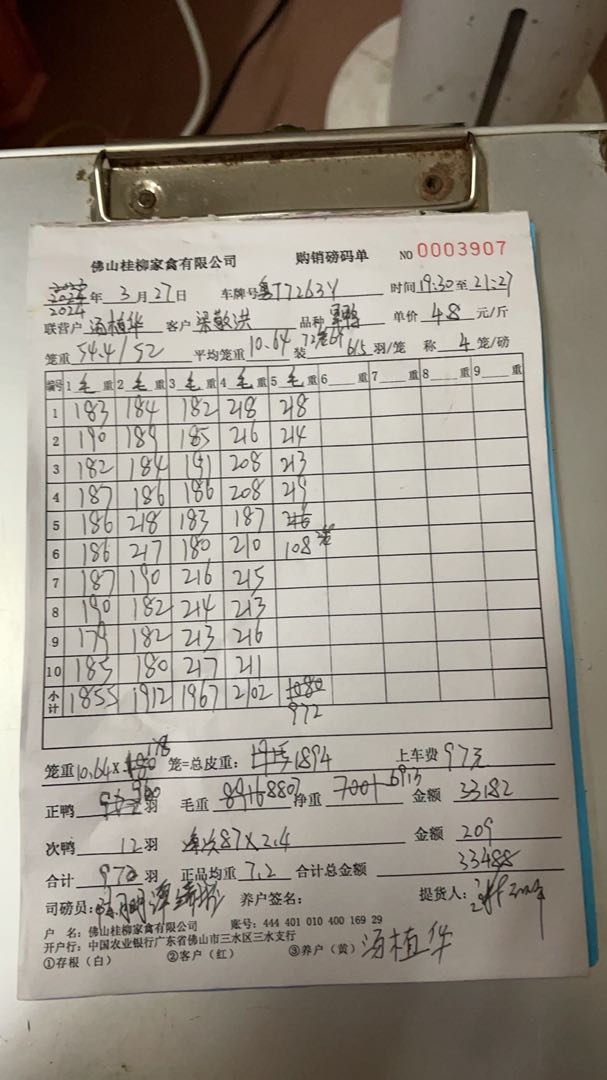 佛山桂柳家禽有限公司 购销磅码单 NO 0003907
2024年 3月27日 车牌号 粤T7263Y 时间 19:30至21:27
联营户 汤植华 客户 梁敬洪 品种 单价 4.8 元/斤
笼重 54.4/52 平均笼重 10.64 装 羽/笼 称 4 笼/磅
编号 1 毛 重 2 毛 重 3 毛 重 4 毛 重 5 毛 重 6 重 7 重 8 重 9 重
1 183 184 182 218 218
2 190 189 185 216 214
3 182 184 191 208 213
4 187 186 186 208 219
5 186 218 183 187
6 186 217 180 210 108
7 187 190 216 215
8 190 182 214 213
9 179 182 213 216
10 185 180 217 211
小计 1855 1912 1967 2102 1080
972
笼重 10.64× 178 笼=总皮重: 1894 上车费 97元
正鸭 960 羽 毛重 8807 净重 6913 金额 33182
次鸭 12 羽 87×2.4 金额 209
合计 972 羽 正品均重 7.2 合计总金额 33488
司磅员: 养户签名: 提货人:
户 名: 佛山桂柳家禽有限公司 账号: 444 401 010 400 169 29
开户行: 中国农业银行广东省佛山市三水区三水支行
①存根(白) ②客户(红) ③养户(黄) 汤植华